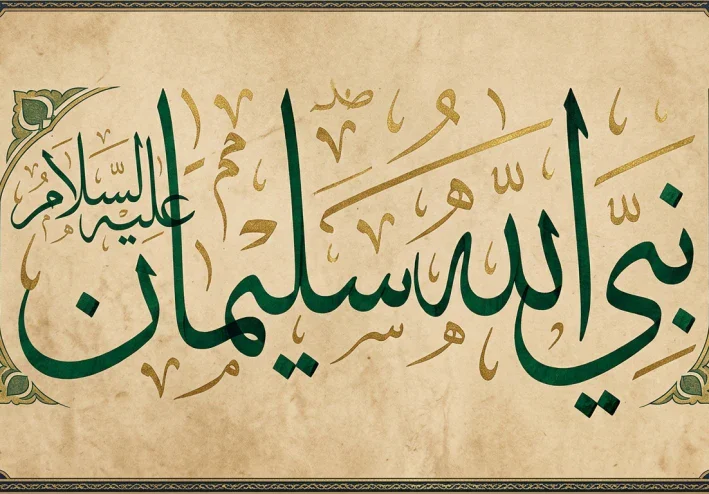 نَبِيُّ اللّٰه سُلَيْمَان
عليه السّلام